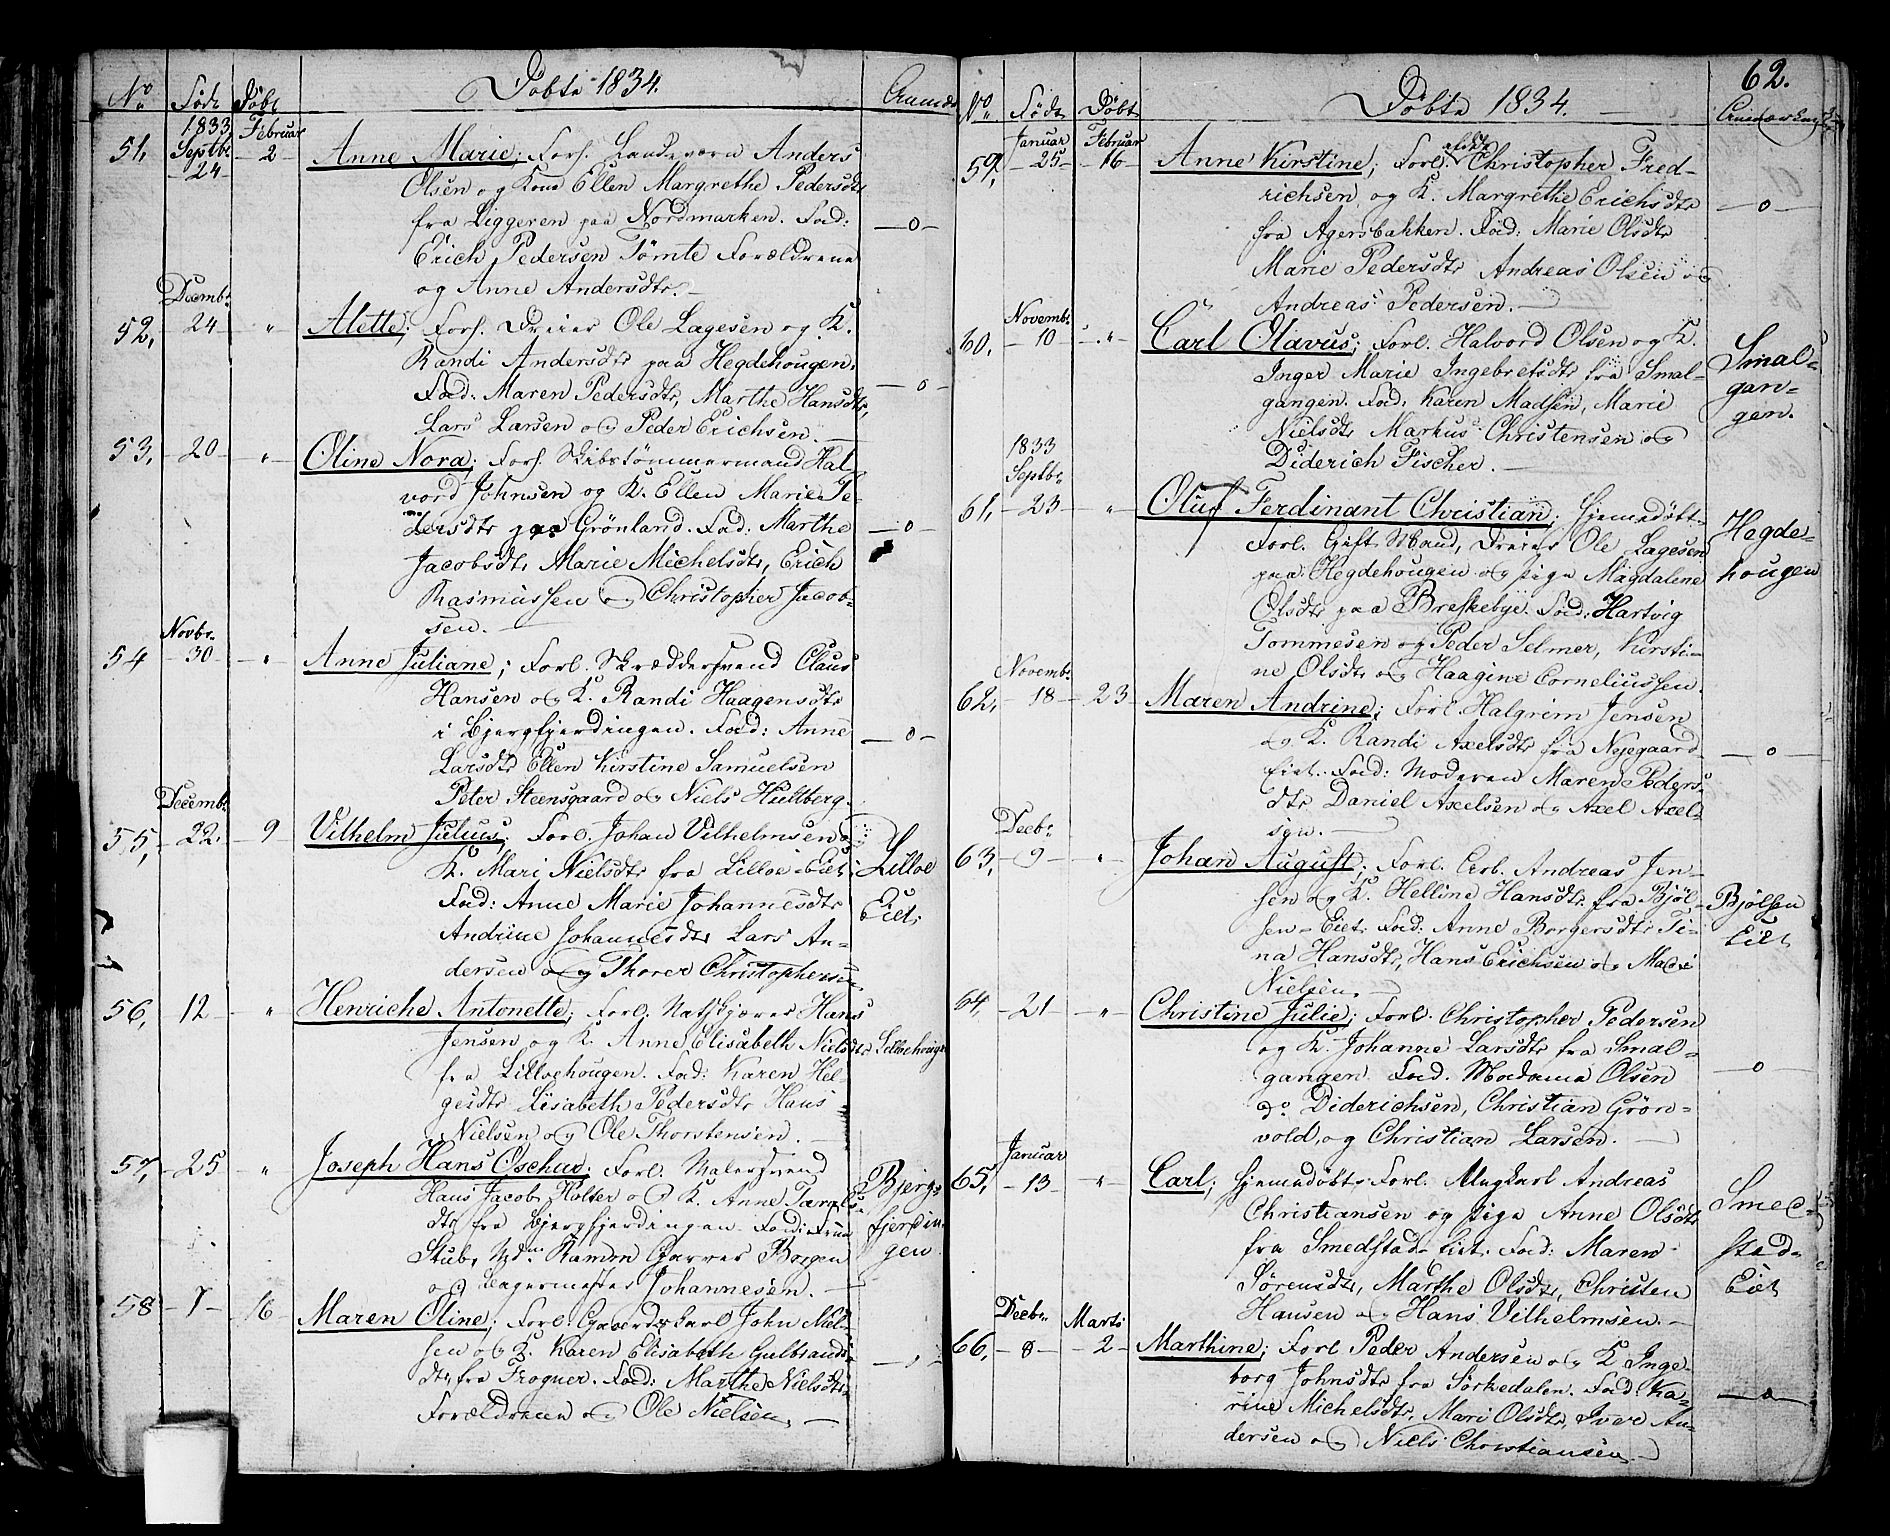 No Föd. Döbt Döbte 1834. Anmæ
1833 Februar
51, Septbr 24 - 2 - Anne Marie; Forl. Landeværn Anders
Olsen og Kone Ellen Margrethe Pedersdtr
fra Liggeren paa Nordmarken. Fad:
Erich Pedersen Tömte Forældrene
og Anne Andersdtr. - - o -
Decembr
52, - 24 - " Alette; Forl. Dreier Ole Lagesen og K.
Randi Andersdtr paa Hegdehougen.
Fad: Maren Pedersdtr, Marthe Hansdtr, - o -
Lars Larsen og Peder Erichsen. -
53, - 20 - " Oline Nora; Forl. Skibstömmermand Hal-
vord Johnsen og K. Ellen Marie Pe-
dersdtr paa Grönland. Fad: Marthe - o -
Jacobsdtr Marie Michelsdtr, Erich
Rasmussen og Christopher Jacob-
sen. -
Novbr
54 - 30 - " Anne Juliane; Forl. Skræddersvend Claus
Hansen og K. Randi Haagensdtr
i Bjergfjerdingen. Fad: Anne - o -
Larsdtr Ellen Kirstine Samuelsen
Peter Steensgaard og Niels Hultberg.
Decembr
55, - 22. - 9 Vilhelm Julius; Forl. Johan Vilhelmsen og
K. Mari Nielsdtr fra Lilloe-Eiet. Lilloe
Fad: Anne Marie Johannesdtr Eiet
Andrine Johannesdtr Lars An-
dersen og Thorer Christophersen
56, 12 " Henriche Antonette; Forl. Natskjærer Hans
Jensen og K. Anne Elisabeth Nielsdtr Lilloehougen
fra Lilloehougen. Fad: Karen Hel-
gesdtr Lisabeth Pedersdtr Hans
Nielsen og Ole Thorstensen. -
57, - 25 " Joseph Hans Oschar; Forl. Malersvend
Hans Jacob Holter og K. Anne Taraldsdtr Bjerg-
fra Bjergfjerdingen. Fad: Frue fjerdin-
Stub, Md. Ramon Garver Borgen gen
og Lagermester Johannesen. -
58 - 7 - 16 Maren Oline; Forl. Gaardskarl John Niel-
sen og K. Karen Elisabeth Gulbrands-
dtr fra Frogner. Fad: Marthe Nielsdtr
Forældrene og Ole Nielsen. -
62.
No. Födt Döbt Döbte 1834. Anmærkning
Januar Februar
59, - 25 - - 16 - Anne Kirstine; Forl. Christopher Fred-
richsen, og K. Margrethe Erichsdtr - o -
fra Agersbakken. Fad: Marie Olsdtr
Marie Pedersdtr Andreas Olsen og
Andreas Pedersen. -
Novembr
60, - 10 - " Carl Olavus; Forl. Halvord Olsen og K.
Inger Marie Ingebretsdtr fra Smal- Smal-
gangen. Fad: Karen Madsen, Marie gan-
Nielsdtr Markus Christensen og gen.
Diderich Fischer. -
1833
Septbr
61, - 23 - " Oluf Ferdinant Christian; Hjemedöbt.
Forl. Gift Mand, Dreier Ole Lagesen Hegde-
paa Hegdehougen og pige Magdalene hougen
Olsdtr paa Breskebye. Fad: Hartvig
Tommesen og Peder Selmer, Kirsti-
ne Olsdtr og Haagine Corneliussen.
Novembr
62, - 18 - 23 - Maren Andrine; Forl. Halgrim Jensen
og K. Randi Axelsdtr fra Nyegaard - o -
Eiet. Fad: Moderen Maren Peders-
dtr Daniel Axelsen og Axel Axel-
sen. -
Decbr
63, - 9 - " Johan August; Forl. Arb. Andreas Jen-
sen og K. Helline Hansdtr fra Bjöl- Bjölsen
sen-Eiet. Fad: Anne Borgersdtr Ti- Eiet
na Hansdtr, Hans Erichsen og
Nielsen. -
64, - 21 - " Christine Julie; Forl. Christopher Pedersen
og K. Johanne Larsdtr fra Smal-
gangen. Fad. Madame Olsen - o -
do Diderichsen, Christian Grön-
vold, og Christian Larsen. -
Januar
65, - 13 - " Carl; Hjemedöbt. Forl. Ungkarl Andreas
Christiansen og pige Anne Olsdtr Smed-
fra Smedstad-Eiet. Fad: Maren stad-
Sörensdtr, Marthe Olsdtr, Christen Eiet
Hansen og Hans Vilhelmsen. -
Decbr Marts
66, - 8 - - 2 - Marthine; Forl Peder Andersen og K Inge
borg Johnsdtr fra Sörkedalen. Fad: Ka- - o -
rine Michelsdtr, Mari Olsdtr, Iver An-
dersen og Niels Christiansen. -